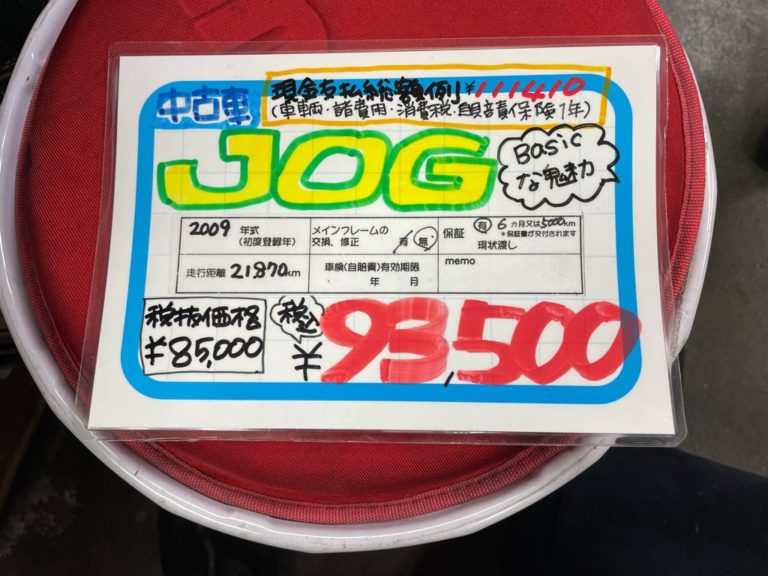 中古車
現金支払総額例 ¥111,410
(車輌・諸費用・消費税・自賠責保険1年)
JOG
Basic
な魅力
2009 年式
(初度登録年)
メインフレームの
交換、修正 有 無
保証 有 6 カ月又は5000km
*保証書が交付されます
現状渡し
走行距離 21,870km
車検(自賠責)有効期限
年 月
memo
税抜価格
¥85,000
税込
¥93,500